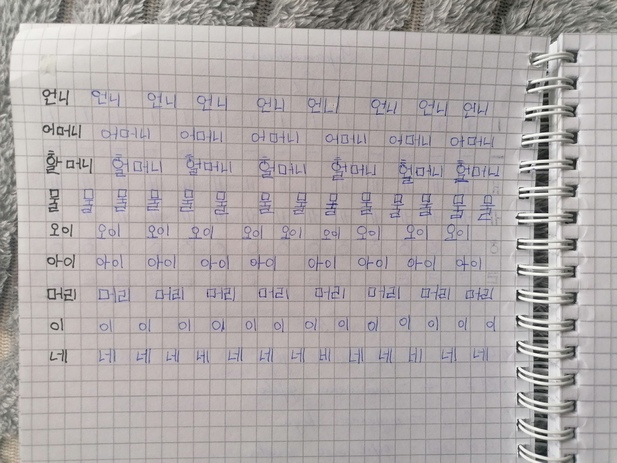 언니 언니 언니 언니 언니 언니 언니 언니 언니
어머니 어머니 어머니 어머니 어머니 어머니 어머니
할머니 할머니 할머니 할머니 할머니 할머니 할머니
물 물 물 물 물 물 물 물 물 물 물 물 물 물
오이 오이 오이 오이 오이 오이 오이 오이 오이 오이
아이 아이 아이 아이 아이 아이 아이 아이 아이
머리 머리 머리 머리 머리 머리 머리 머리 머리
이 이 이 이 이 이 이 이 이 이 이 이 이 이
네 네 네 네 네 네 네 네 네 네 네 네 네 네